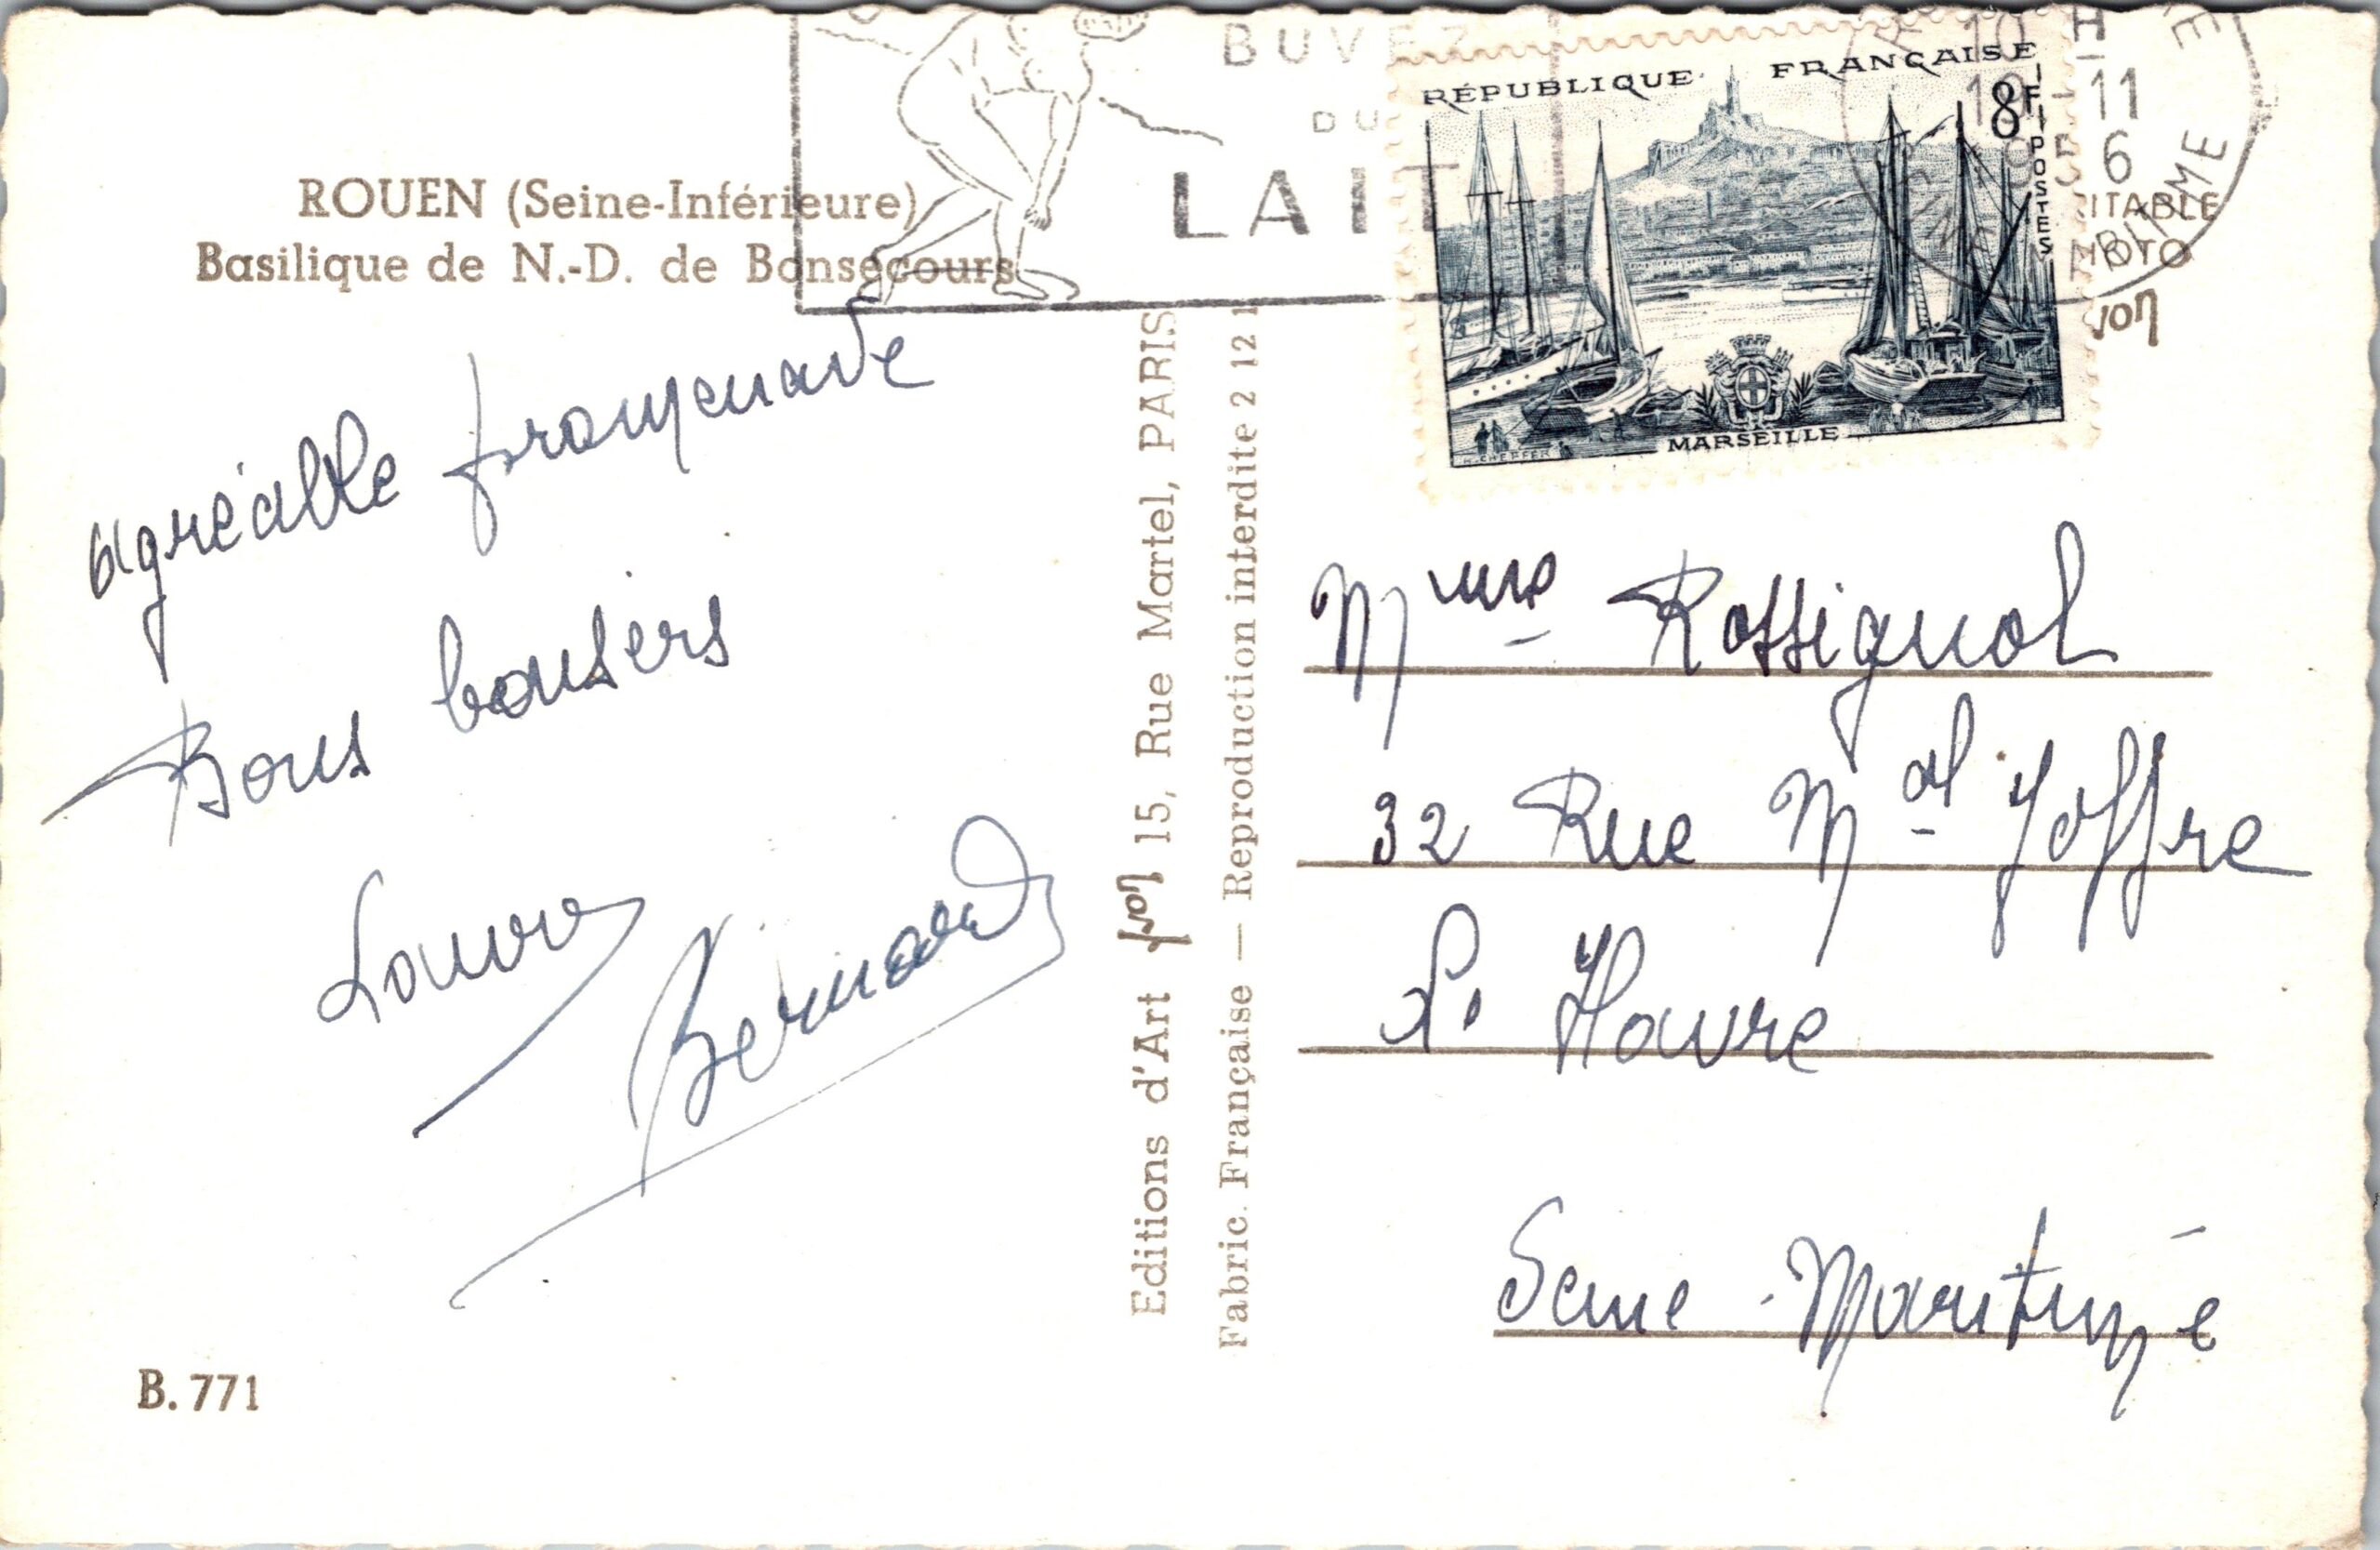 ROUEN (Seine-Inférieure)
Basilique de N.-D. de Bonsecours
agréable promenade
Bons baisers
Bernard
B. 771
Editions d'Art Yvon 15, Rue Martel, PARIS
Fabric. Française — Reproduction interdite 2 12 1
BUVEZ
DU
LAIT
RÉPUBLIQUE FRANÇAISE
8F
POSTES
MARSEILLE
H. CHEFFER
10 H
19-11
1956
ITABLE
HOTO
von
Mme Rossignol
32 Rue Mal Joffre
Le Havre
Seine-Maritime